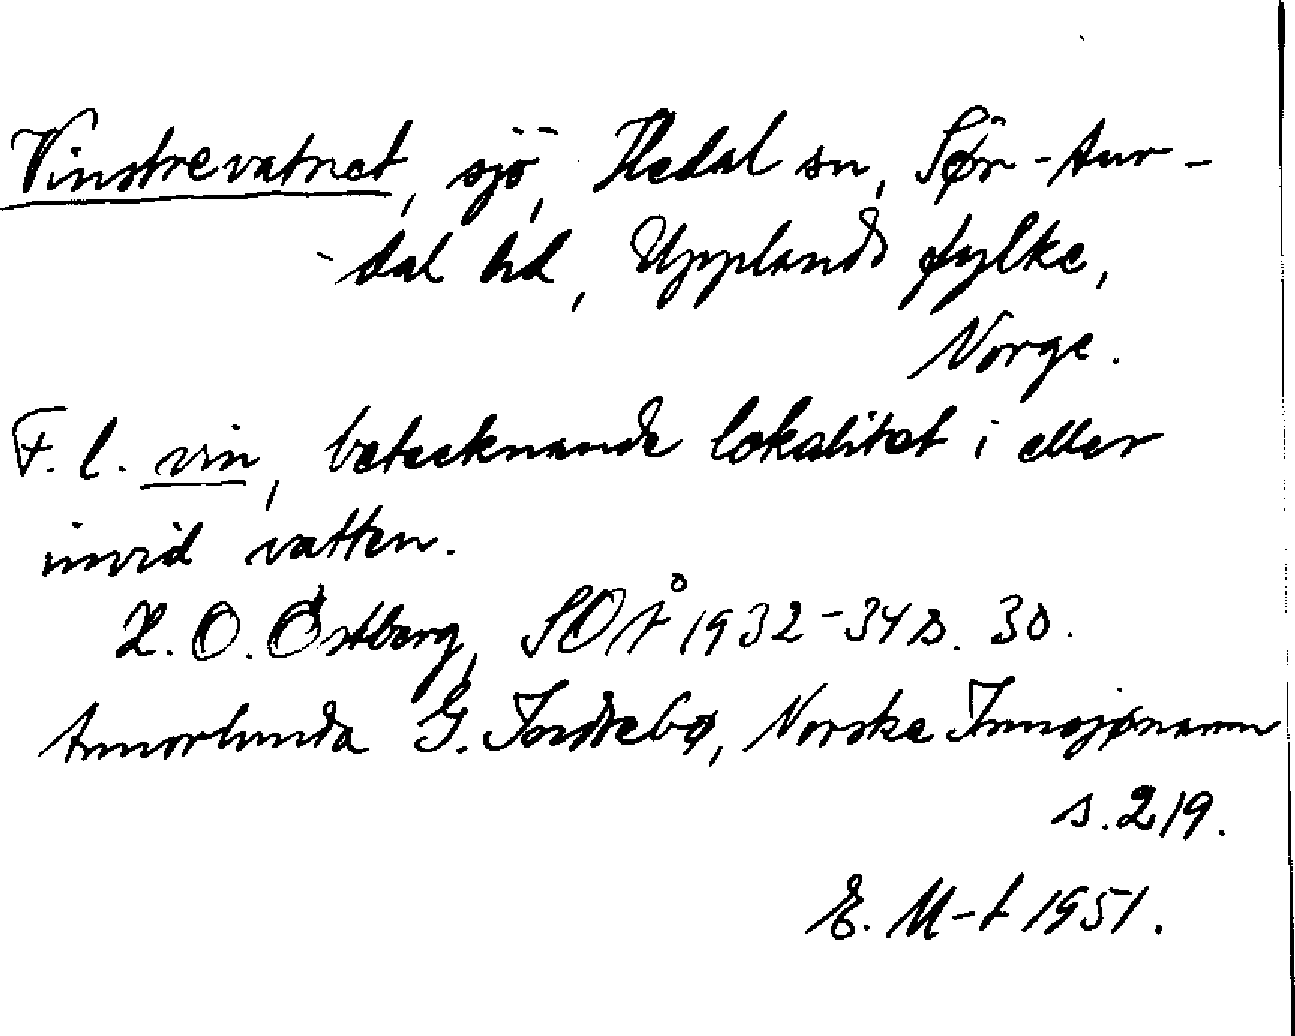 Vinstrevatnet, sjö, Hedal sn, Sør-Aur-
-dal hd, Upplands fylke,
Norge.
F. l. vin, betecknande lokalitet i eller
invid vatten.
H. O. Östberg, SOÅ 1932-34 s. 30.
Annorlunda G. Indrebø, Norske Innsjønamn
s. 219.
E. M-t 1951.